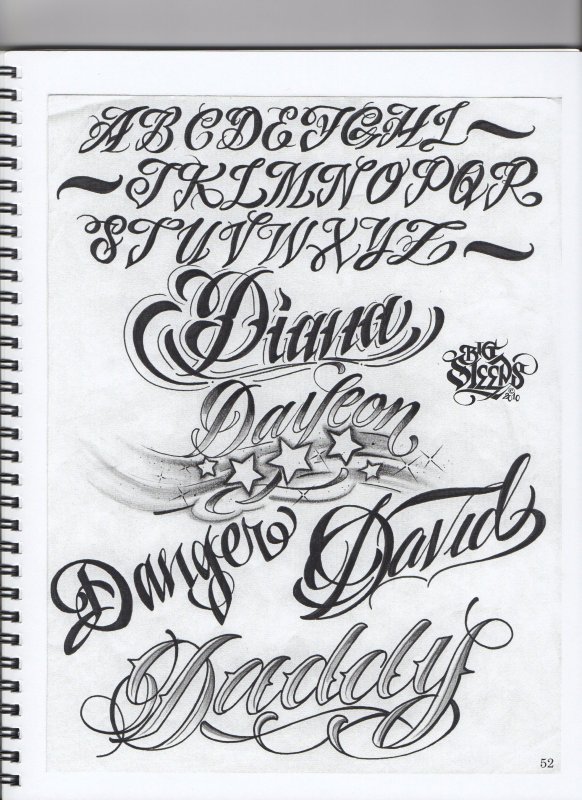 ABCDEFGHI
JKLMNOPQR
STUVWXYZ
Diana
BIG
SLEEPS
©
2010
Dayleon
Danger
David
Daddy
52